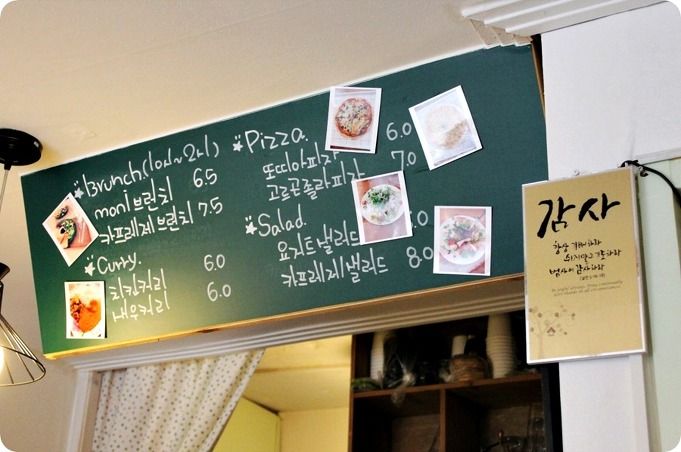 Brunch(10시~2시)
moni브런치 6.5
카프레제브런치 7.5
Curry.
치킨커리 6.0
새우커리 6.0
Pizza.
또띠아피자 6.0
고르곤졸라피자 7.0
Salad.
요거트샐러드 .0
카프레제샐러드 8.0
감사
항상 기뻐하라
쉬지말고 기도하라
범사에 감사하라